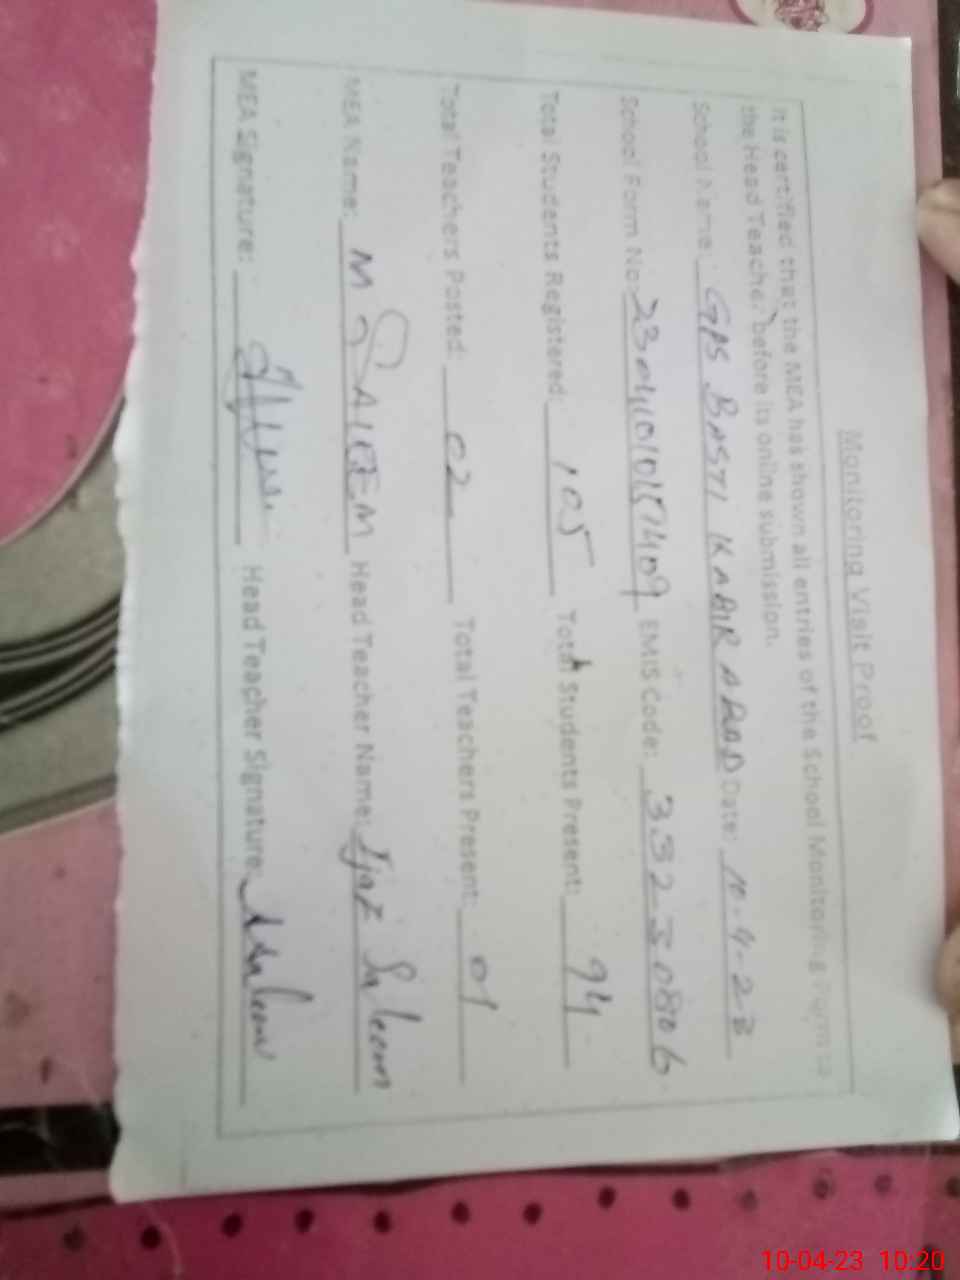 Monitoring Visit Proof
It is certified that the MEA has shown all entries of the School Monitoring Form to
the Head Teacher before its online submission.
School Name: GPS BASTI KABIR ABAD Date: 10-4-23
School Form No: EMIS Code: 33230806
Total Students Registered: 105 Total Students Present: 94
Total Teachers Posted: 02 Total Teachers Present: 01
MEA Name: M SALEEM Head Teacher Name: Ijaz Saleem
MEA Signature: Head Teacher Signature:
10-04-23 10:20